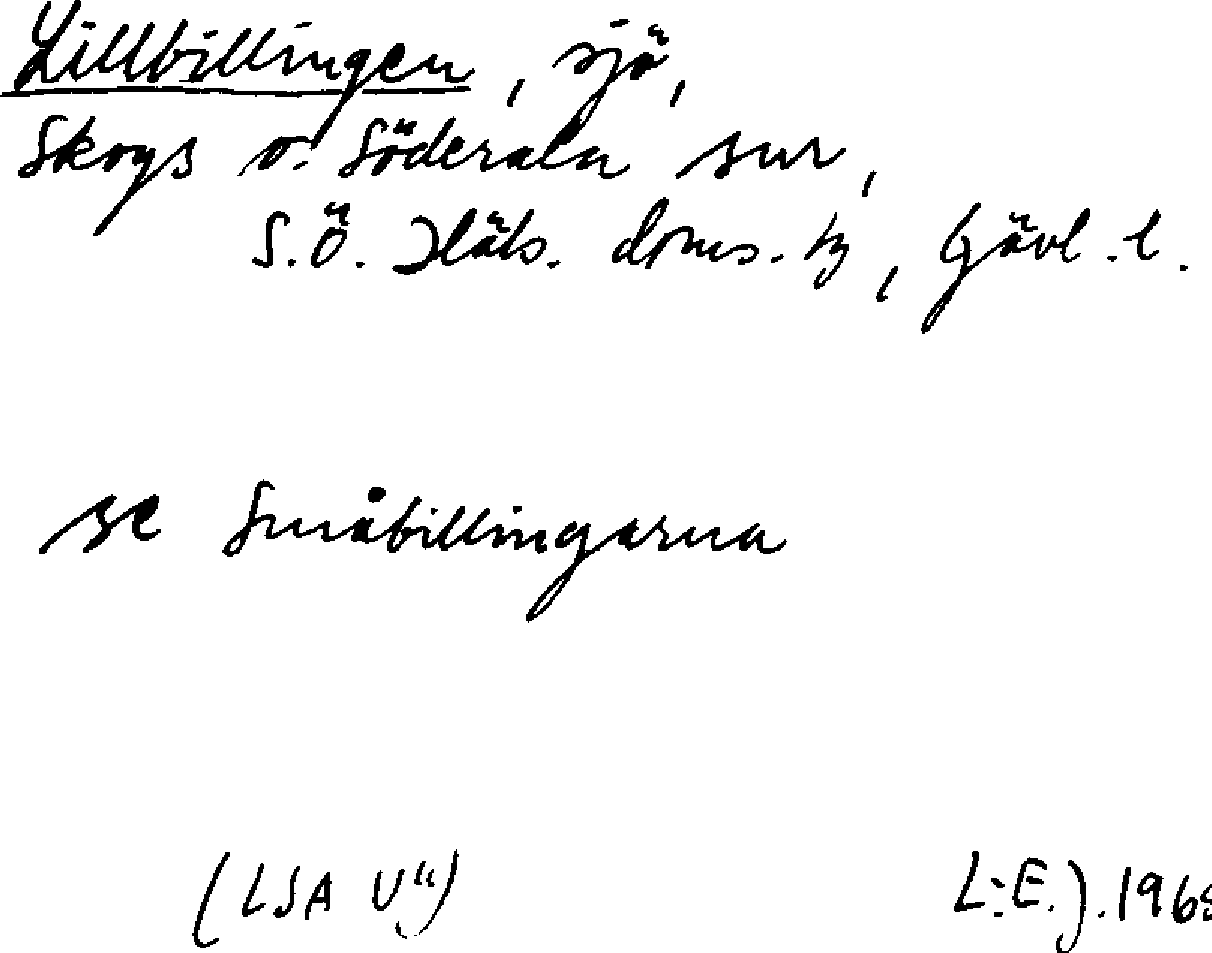 Lillbillingen, sjö,
Skogs o. Söderala snr,
S.Ö. Häls. doms. tg, Gävl. l.
se Småbillingarna
(LSA U")
L-E. J. 196